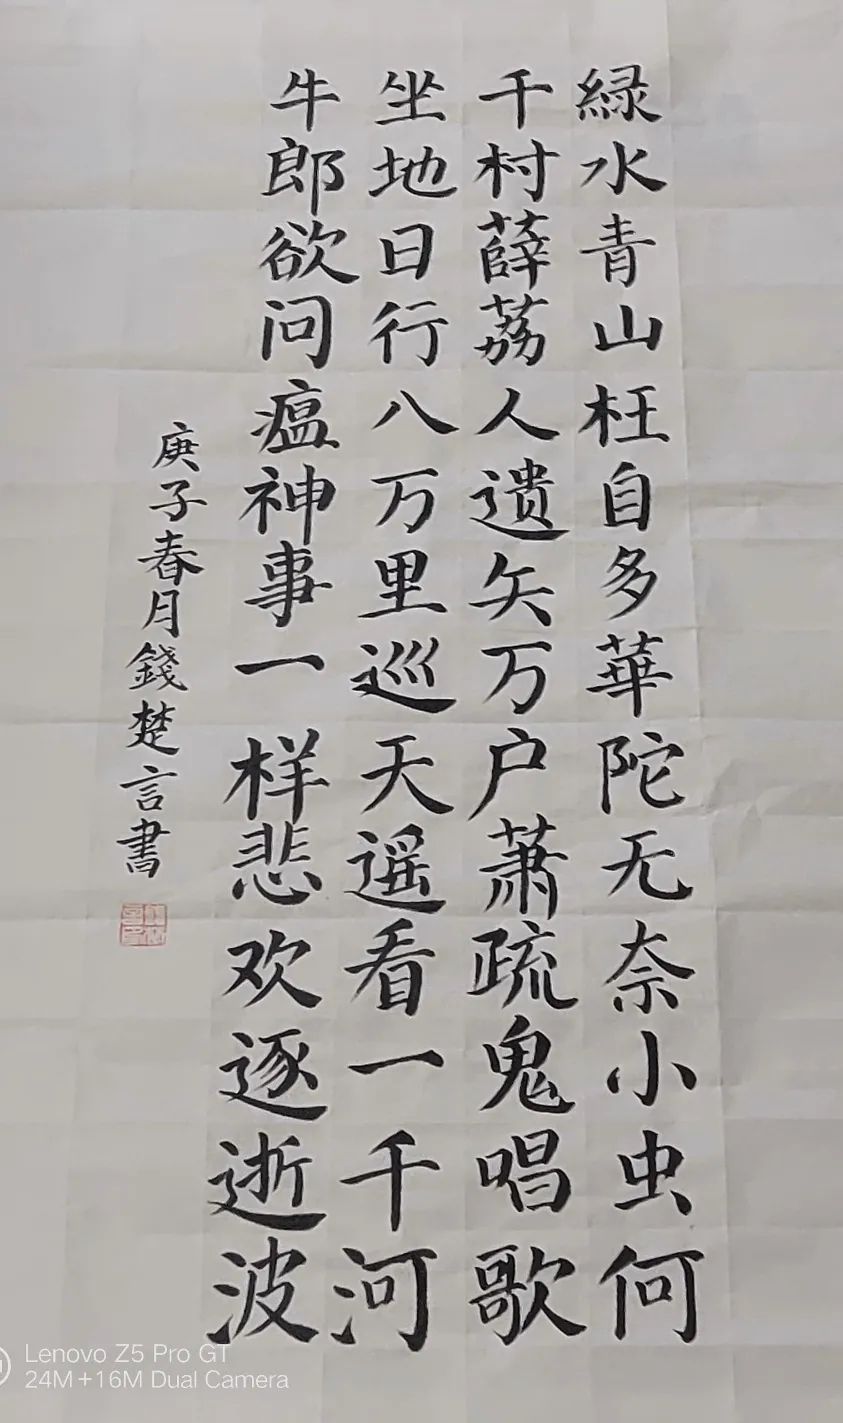 緑水青山枉自多華陀无奈小虫何
千村薜荔人遗矢万户萧疏鬼唱歌
坐地日行八万里巡天遥看一千河
牛郎欲问瘟神事一样悲欢逐逝波
庚子春月錢楚言書
Lenovo Z5 Pro GT
24M+16M Dual Camera